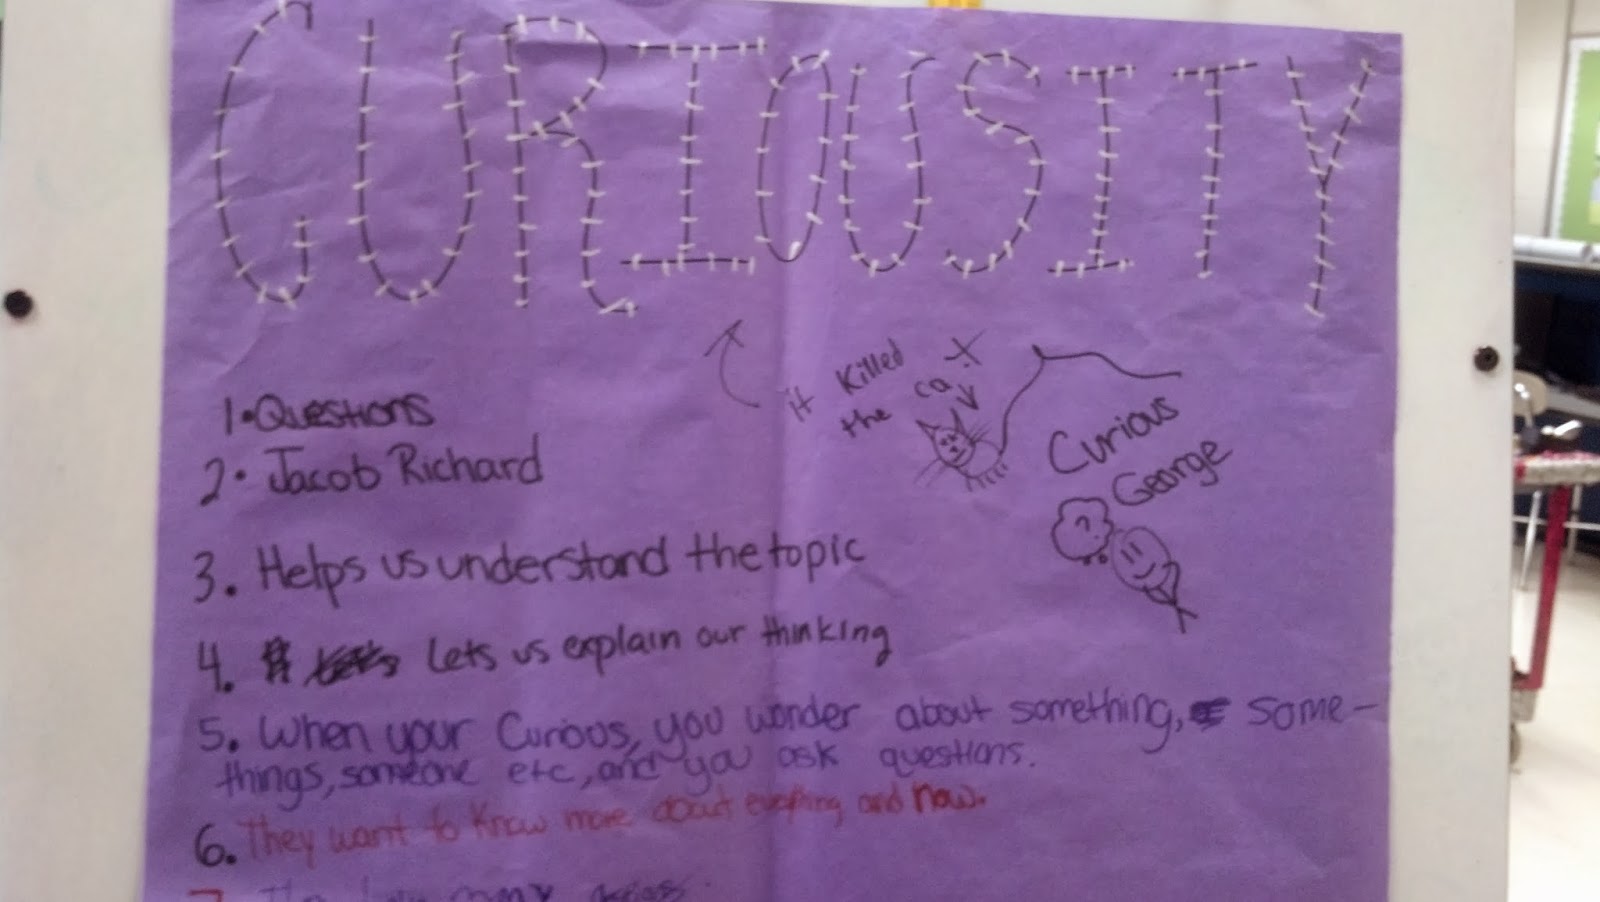 CURIOSITY
it Killed
the cat
Curious
George
?
1. Questions
2. Jacob Richard
3. Helps us understand the topic
4. Lets us explain our thinking
5. When your Curious, you wonder about something, some-
things, someone etc, and you ask questions.
6. They want to know more about everything and now.
7.